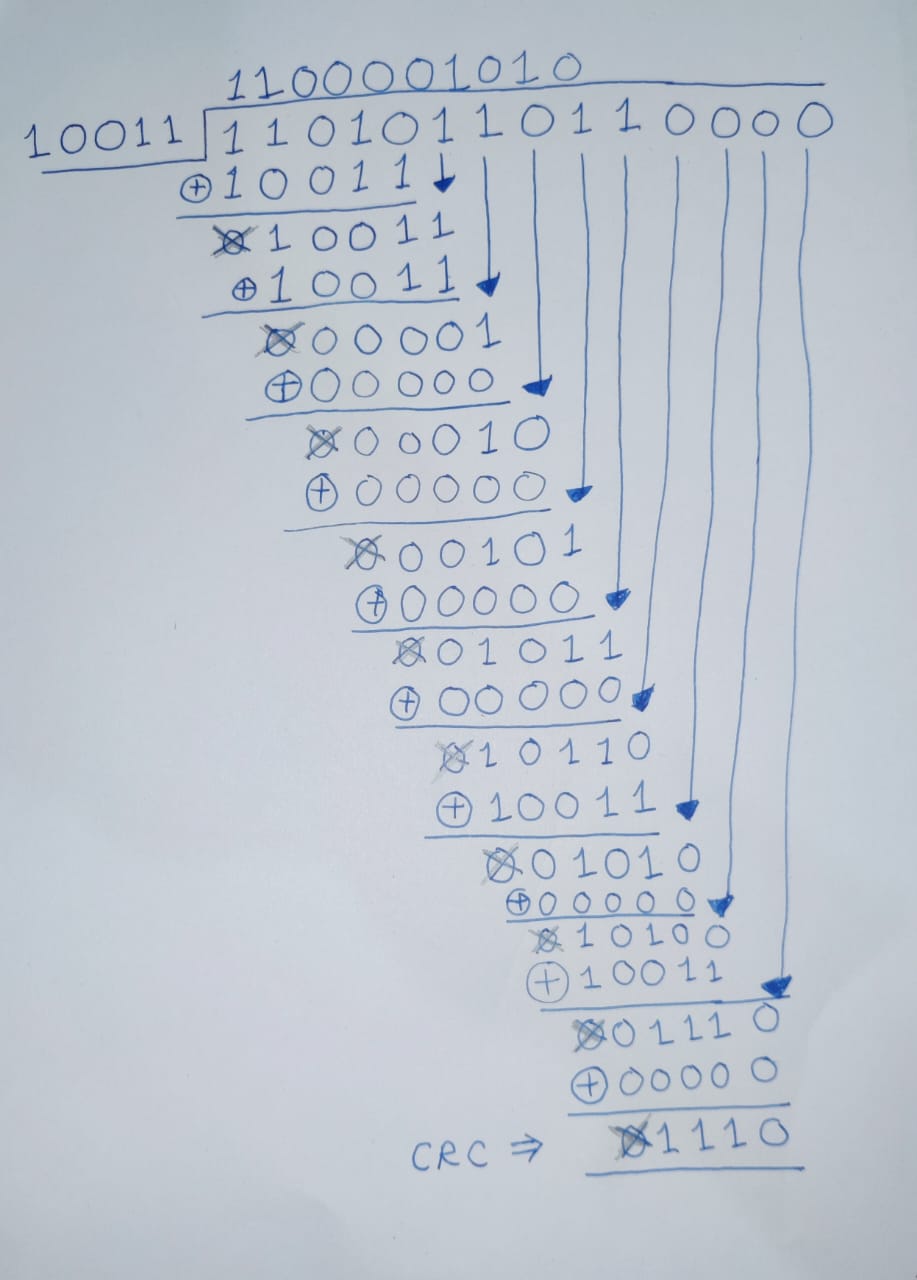 1100001010
10011 11010110110000
⊕10011
010011
⊕10011
000001
⊕00000
000010
⊕00000
000101
⊕00000
001011
⊕00000
010110
⊕10011
001010
⊕00000
010100
⊕10011
001110
⊕00000
CRC ⇒ 01110